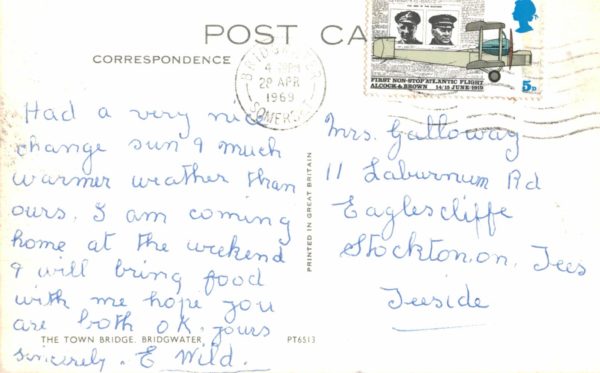 POST CA
CORRESPONDENCE
BRIDGWATER
28 APR
1969
SOMERSET
FIRST NON-STOP ATLANTIC FLIGHT
ALCOCK & BROWN 14/15 JUNE 1919
5D
Had a very nice
change sun & much
warmer weather than
ours. I am coming
home at the weekend
& will bring food
with me hope you
are both O.K. yours
sincerely. E Wild.
PRINTED IN GREAT BRITAIN
Mrs. Galloway
11 Laburnum Rd
Eaglescliffe
Stockton. on. Tees
Teeside
THE TOWN BRIDGE, BRIDGWATER. PT6513